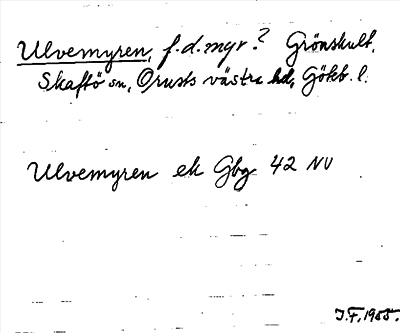 Ulvemyren, f.d. myr? Grönskult,
Skaftö sn, Orusts västra hd, Götb. l.
Ulvemyren ek Gbg 42 NV
J.F. 1985.